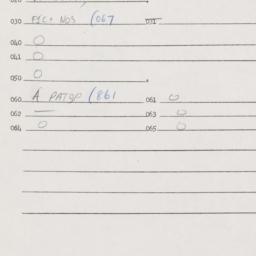 030 FIC+ NO3 (067 031
040 O
041 O
050 O
060 A PATOP (861 061 O
062 — 063 O
064 O 065 O